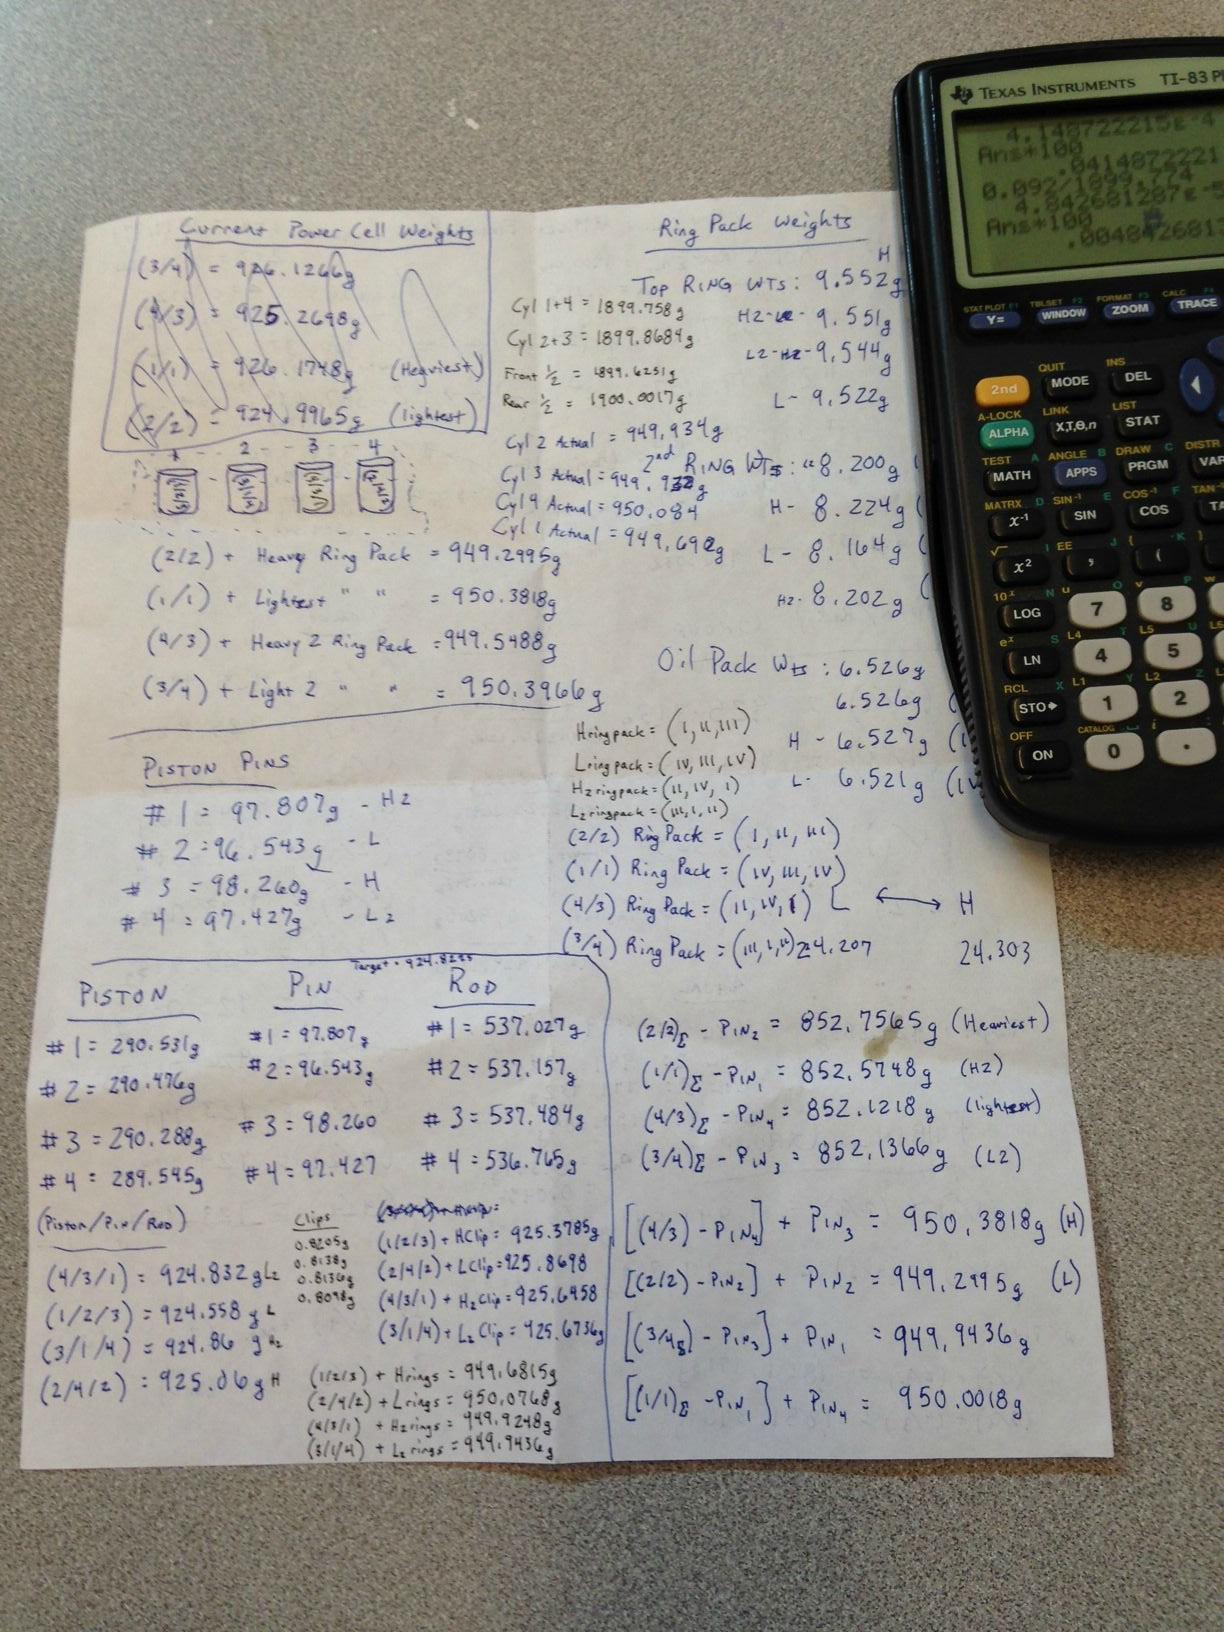 Current Power Cell Weights
(3/4) = 926.1266g
(4/3) = 925.2698g
(1/1) = 926.1748g (Heaviest)
(2/2) = 924.9965g (lightest)
2 3 4
(2/2) + Heavy Ring Pack = 949.2995g
(1/1) + Lightest " " = 950.3818g
(4/3) + Heavy 2 Ring Pack = 949.5488g
(3/4) + Light 2 " " = 950.3966g
PISTON PINS
# 1 = 97.807g - H2
# 2 = 96.543g - L
# 3 = 98.260g - H
# 4 = 97.427g - L2
Ring Pack Weights
H
Top RING WTS: 9.552g
H2 - 9.551g
L2 - 9.544g
L - 9.522g
Cyl 1+4 = 1899.758g
Cyl 2+3 = 1899.8684g
Front 1/2 = 1899.6251g
Rear 1/2 = 1900.0017g
Cyl 2 Actual = 949.934g
Cyl 3 Actual = 949.932g
Cyl 4 Actual = 950.084
Cyl 1 Actual = 949.692g
2nd RING WTS: 8.200g
H - 8.224g
L - 8.164g
H2 - 8.202g
Oil Pack Wts: 6.526g
6.526g
H - 6.527g
L - 6.521g
H ring pack = (I, II, III)
L ring pack = (IV, III, IV)
H2 ring pack = (II, IV, I)
L2 ring pack = (III, I, II)
(2/2) Ring Pack = (I, II, III)
(1/1) Ring Pack = (IV, III, IV)
(4/3) Ring Pack = (II, IV, I) L ⟷ H
(3/4) Ring Pack = (III, I, II) 24.207 24.303
Target = 924.8255
PISTON PIN ROD
#1 = 290.531g #1 = 97.807g #1 = 537.027g
#2 = 290.476g #2 = 96.543g #2 = 537.157g
#3 = 290.288g #3 = 98.260 #3 = 537.484g
#4 = 289.545g #4 = 97.427 #4 = 536.765g
(Piston/Pin/Rod)
(4/3/1) = 924.832g L2
(1/2/3) = 924.558g L
(3/1/4) = 924.86 g H2
(2/4/2) = 925.06g H
Clips
0.8205g
0.8138g
0.8136g
0.8098g
(1/2/3) + HClip = 925.3785g
(2/4/2) + LClip = 925.8698
(4/3/1) + H2Clip = 925.6458
(3/1/4) + L2 Clip = 925.6736g
(1/2/3) + Hrings = 949.6815g
(2/4/2) + Lrings = 950.0768g
(4/3/1) + H2rings = 949.9248g
(3/1/4) + L2 rings = 949.9436g
(2/2)Σ - PIN2 = 852.7565g (Heaviest)
(1/1)Σ - PIN1 = 852.5748g (H2)
(4/3)Σ - PIN4 = 852.1218g (lightest)
(3/4)Σ - PIN3 = 852.1366g (L2)
[(4/3) - PIN4] + PIN3 = 950.3818g (H)
[(2/2) - PIN2] + PIN2 = 949.2995g (L)
[(3/4Σ) - PIN3] + PIN1 = 949.9436g
[(1/1)Σ - PIN1] + PIN4 = 950.0018g
TEXAS INSTRUMENTS TI-83 Pl
4.148722215E-4
Ans*100
.0414872221
0.092/1899.774
4.842681287E-5
Ans*100
.004842681
STAT PLOT F1 TBLSET F2 FORMAT F3 CALC F4
Y= WINDOW ZOOM TRACE
QUIT INS
2nd MODE DEL
A-LOCK LINK LIST
ALPHA X,T,θ,n STAT
TEST A ANGLE B DRAW C DISTR
MATH APPS PRGM VAR
MATRX D SIN-1 E COS-1 F TAN-
x-1 SIN COS TA
√ I EE J { K }
x2 , (
10x N u O v P w
LOG 7 8
ex S L4 T L5 U L6
LN 4 5
RCL X L1 Y L2 Z L
STO▸ 1 2
OFF CATALOG i
ON 0 .